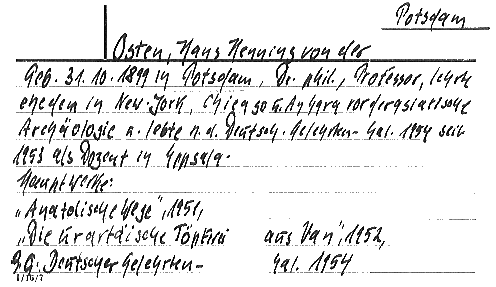 Potsdam
Osten, Hans Henning von der
Geb. 31.10.1899 in Potsdam, Dr. phil., Professor, lehrte
ehedem in New-York, Chicago u. Ankara vorderasiatische
Archäologie u. lebte n. d. Deutsch. Gelehrten-Kal. 1954 seit
1953 als Dozent in Uppsala.
Hauptwerke:
„Anatolische Wege", 1951,
„Die urartäische Töpferei aus Van", 1952,
Deutscher Gelehrten- Kal. 1954